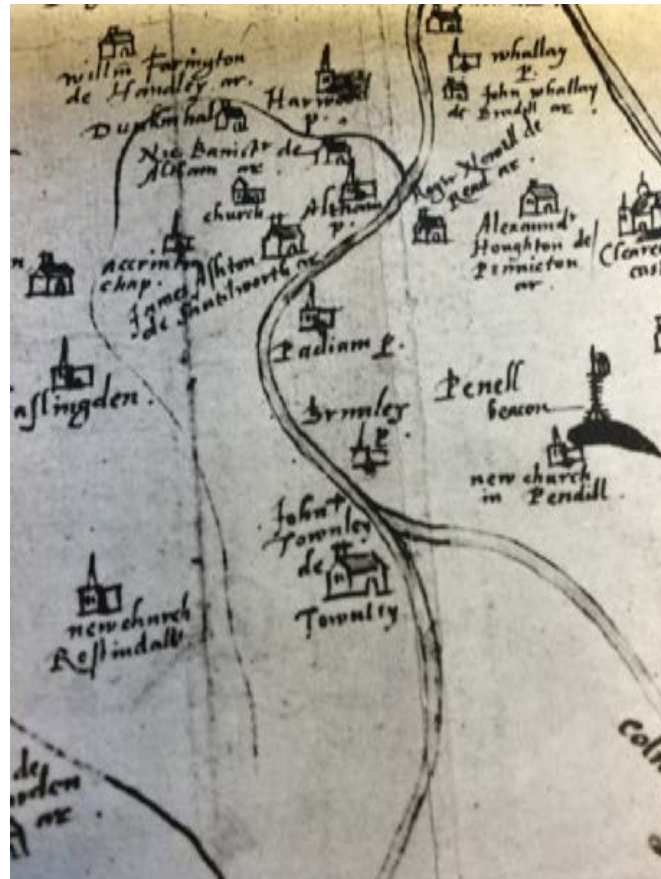 willm Farington
de Handley ar.
Dunkenhal
Harwood
p.
whallay
p.
John whallay
de
ar
Nic Banistr de
Altham ar
church
Altham
p.
Roger Nowell de
Read ar.
Alexaundr
Houghton de
Pennicton
ar.
Cleare
cast
accrinton
chap.
James Ashton
de Shutilworth ar
Padiam p.
aslingden.
Brunley
p
Penell
beacon
new church
in Pendill
John
Townley
de
Townley
new church
Rossindall
coln
de
orden
ar